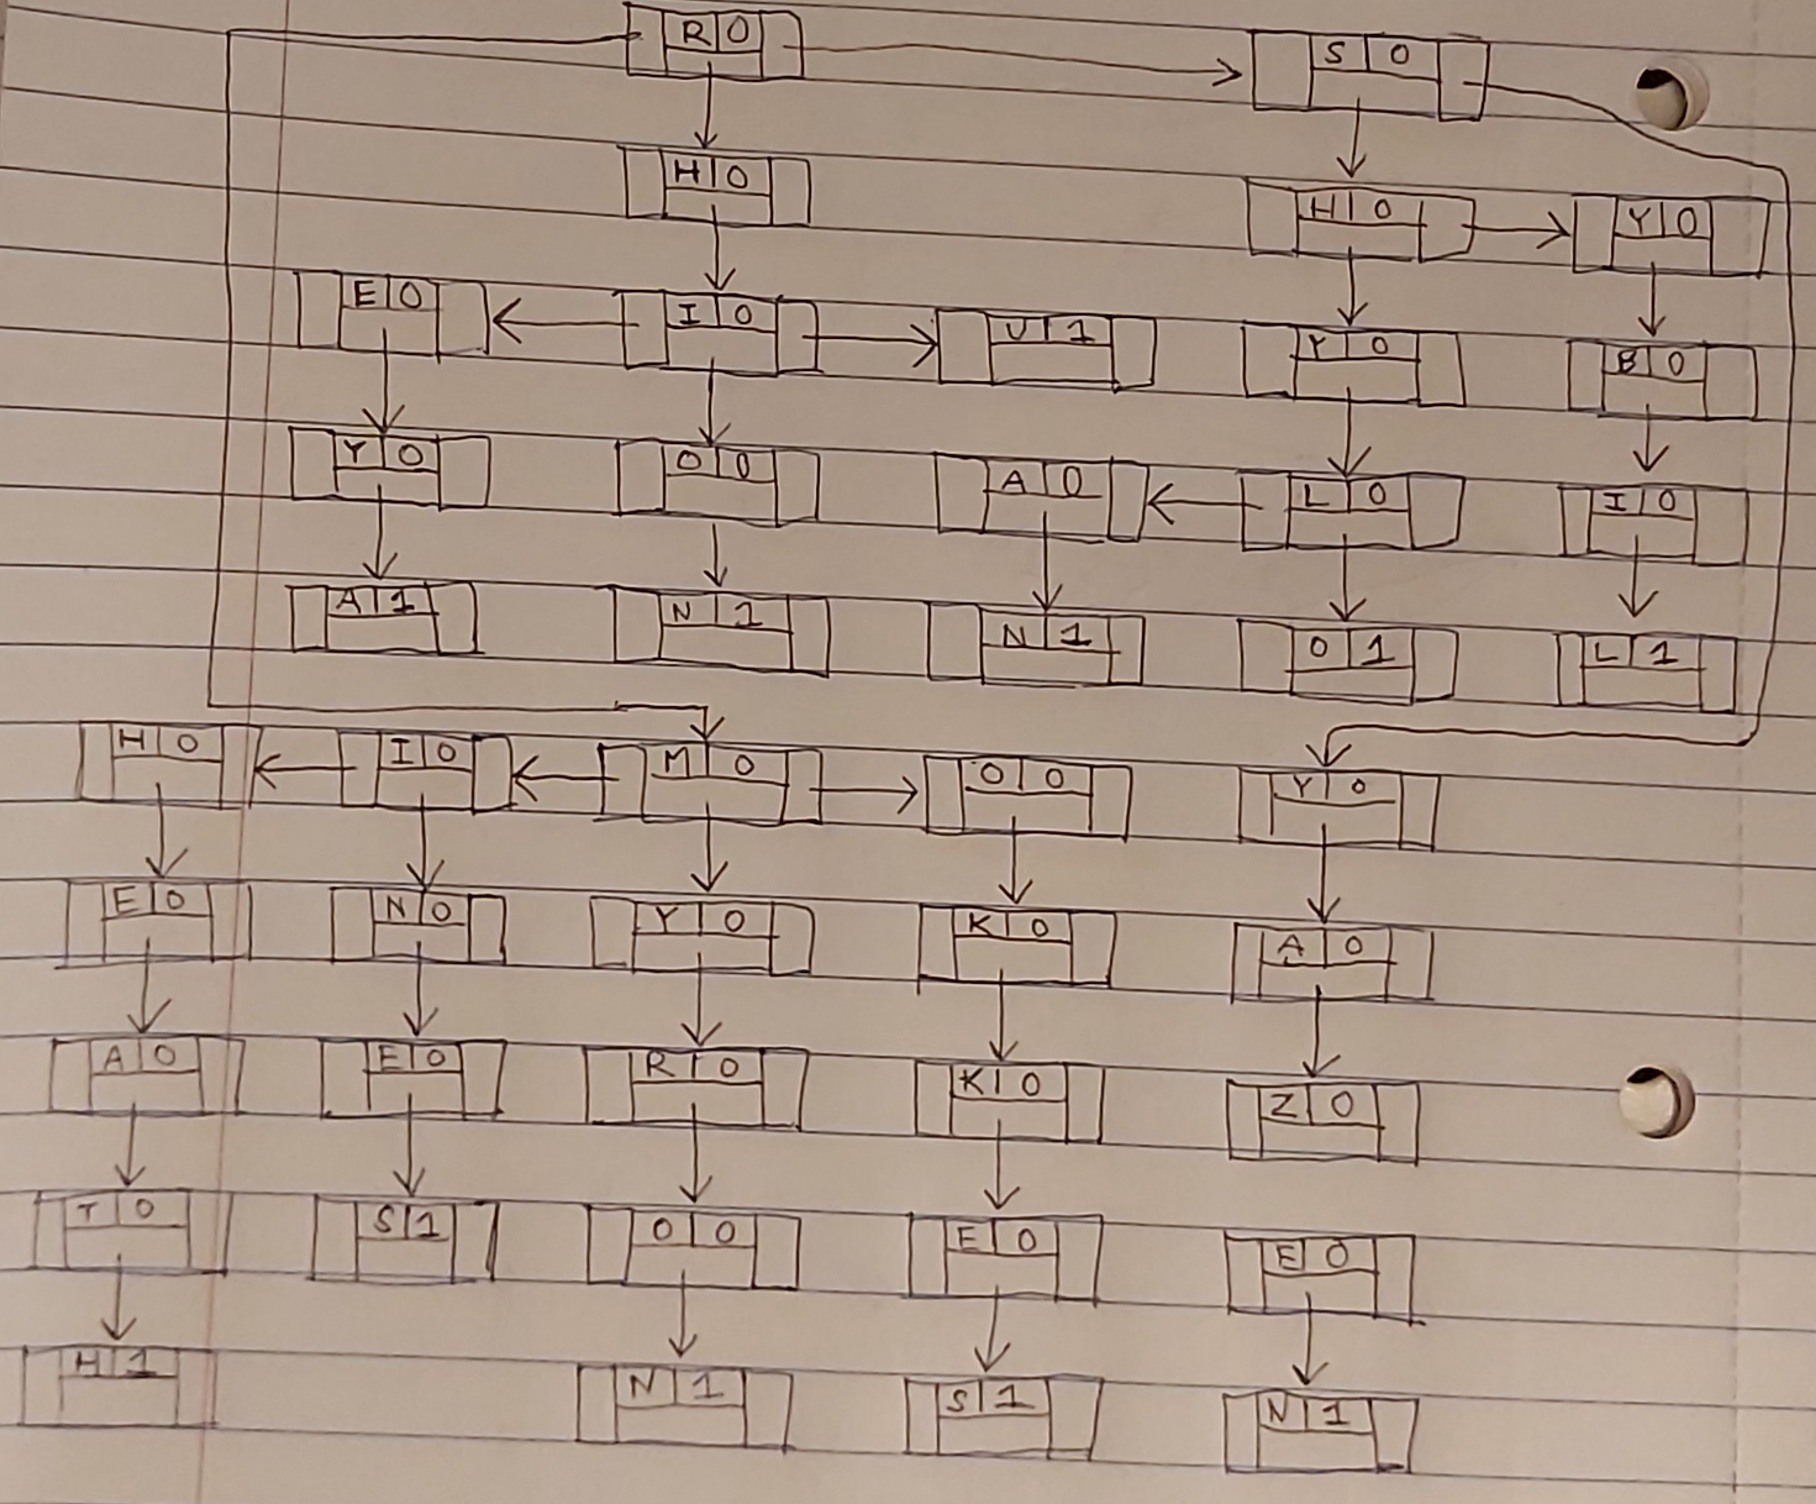 R 0 S 0
H 0 H 0 Y 0
E 0 I 0 U 1 Y 0 B 0
Y 0 O 0 A 0 L 0 I 0
A 1 N 1 N 1 O 1 L 1
H 0 I 0 M 0 O 0 Y 0
E 0 N 0 Y 0 K 0 A 0
A 0 E 0 R 0 K 0 Z 0
T 0 S 1 O 0 E 0 E 0
H 1 N 1 S 1 N 1